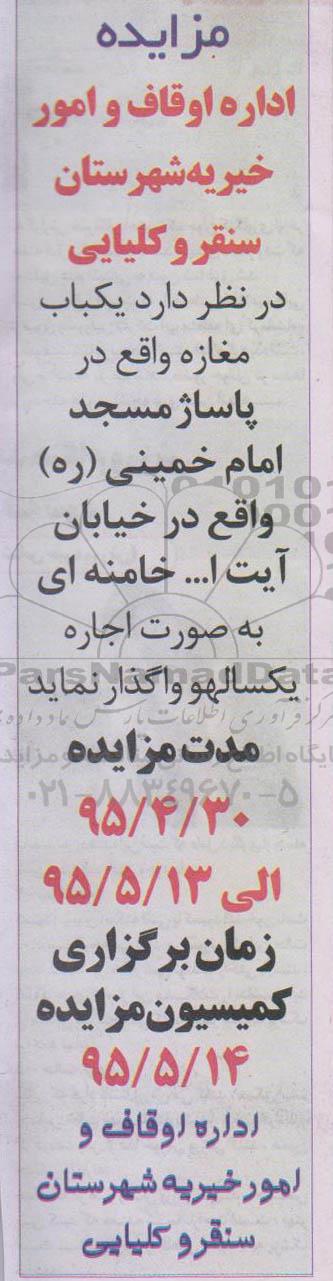 مزایده
اداره اوقاف و امور
خیریه شهرستان
سنقر و کلیایی
در نظر دارد یکباب
مغازه واقع در
پاساژ مسجد
امام خمینی (ره)
واقع در خیابان
آیت ا... خامنه ای
به صورت اجاره
یکسالهو واگذار نماید
مدت مزایده
۹۵/۴/۳۰
الی ۹۵/۵/۱۳
زمان برگزاری
کمیسیون مزایده
۹۵/۵/۱۴
اداره اوقاف و
امور خیریه شهرستان
سنقر و کلیایی
ParsNamadData
۰۲۱-۸۸۳۴۹۶۷۰-۵